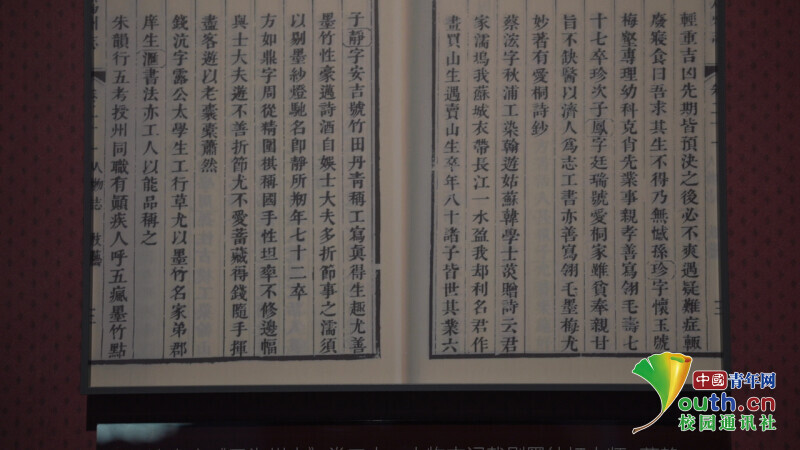 輕重吉凶先期皆預決之後必不爽遇疑難症輒
廢寢食曰吾求其生不得乃無憾孫珍字懷玉號
梅壑專理幼科克肖先業事親孝善寫翎毛壽七
十七卒珍次子鳳字廷瑞號愛桐家雖貧奉親甘
旨不缺醫以濟人為志工書亦善寫翎毛墨梅尤
妙著有愛桐詩鈔
蔡浤字秋浦工染翰遊姑蘇韓學士菼贈詩云君
家濡塢我蘇城衣帶長江一水盈我却利名君作
畫買山生遇賣山生卒年八十諸子皆世其業六
子靜字安吉號竹田丹青稱工寫眞得生趣尤善
墨竹性豪邁詩酒自娛士大夫多折節事之濡須
以剔墨紗燈馳名即靜所刱年七十二卒
方如鼎字周從精圍棋稱國手性坦率不修邊幅
與士大夫遊不善折節尤不愛蓄藏得錢隨手揮
盡客遊以老囊橐蕭然
錢沆字露公太學生工行草尤以墨竹名家弟郡
庠生滙書法亦工人以能品稱之
朱韻行五考授州同職有顛疾人呼五瘋墨竹點
人物志
中國青年网
youth.cn
校园通讯社